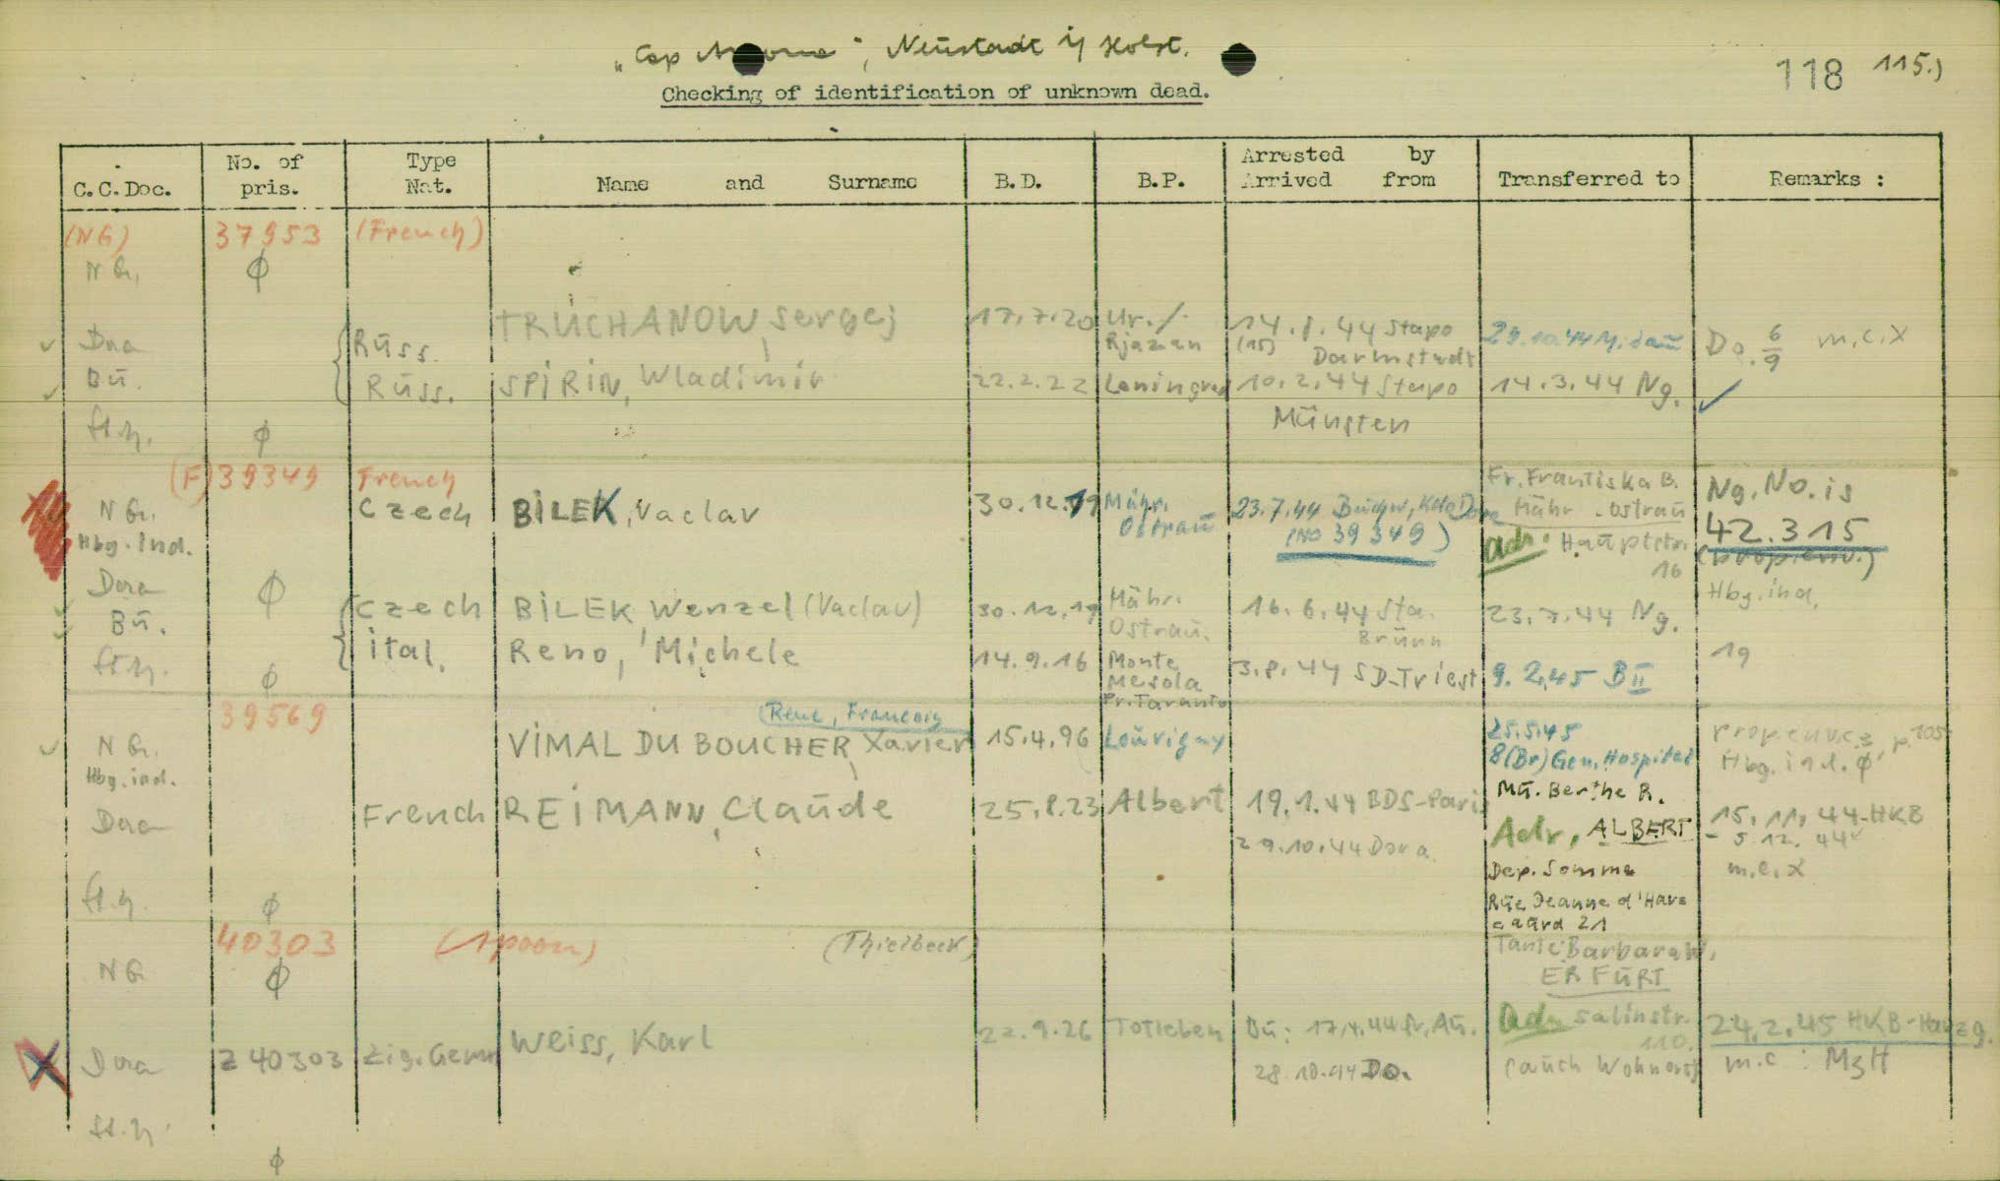 "Cap Arcona", Neustadt i/ Holst.
118 115.)
Checking of identification of unknown dead.
C.C.Doc. No. of pris. Type Nat. Name and Surname B.D. B.P. Arrested by Arrived from Transferred to Remarks :
(NG) 37953 (French)
N G. ϕ
Dora Russ. TRUCHANOW, Sergej 17.7.20 Ur./. Rjazan 14.1.44 Stapo (15) Darmstadt 29.10.44 Do. 6/9 m.c.X
Bu. Russ. SPIRIN, Wladimir 22.2.22 Leningrad 10.2.44 Stapo Münster 14.3.44 Ng. ✓
St.h. ϕ
(F) 39349 French
N G. Czech BILEK, Vaclav 30.12.19 Mähr. Ostrau 23.7.44 Buchw, KL Dora (No 39349) Fr. Frantiska B. Mähr. Ostrau
Adr: Hauptstr. 16
Ng. No. is 42.315
Hbg. Ind.
Dora ϕ
Bu. Czech BILEK Wenzel (Vaclav) 30.12.19 Mähr. Ostrau. 16.6.44 Sta. Brünn 23.7.44 Ng. Hbg.ind. 19
St.h. ϕ ital. Reno, Michele 14.9.16 Monte Mesola Pr.Taranto 3.8.44 SD-Triest 9.2.45 BII
39569 (Rene, Francois)
N G. VIMAL DU BOUCHER, Xavier 15.4.96 Louvigny 25.5.45 8(Br)Gen.Hospital p.105
Hbg. ind. Hbg. ind. ϕ
Dora French REIMANN, Claude 25.8.23 Albert 19.1.44 BDS-Paris
29.10.44 Dora
Mu. Berthe R.
Adr, ALBERT
Dep. Somme
Rue Jeanne d'Harcourd 21
15.11.44-HKB
- 5.12.44
m.c.X
St.h. ϕ
40303 (spoon) (Thielbeck)
NG ϕ
Tante: Barbara W.
ERFURT
Dora Z 40303 Zig.Germ Weiss, Karl 22.9.26 Totleben Bu: 17.4.44 Au.
28.10.44 Do.
Adr Salinstr. 110.
(auch Wohnort)
24.2.45 HKB-Harzg.
m.c : MzH
St.h.
ϕ